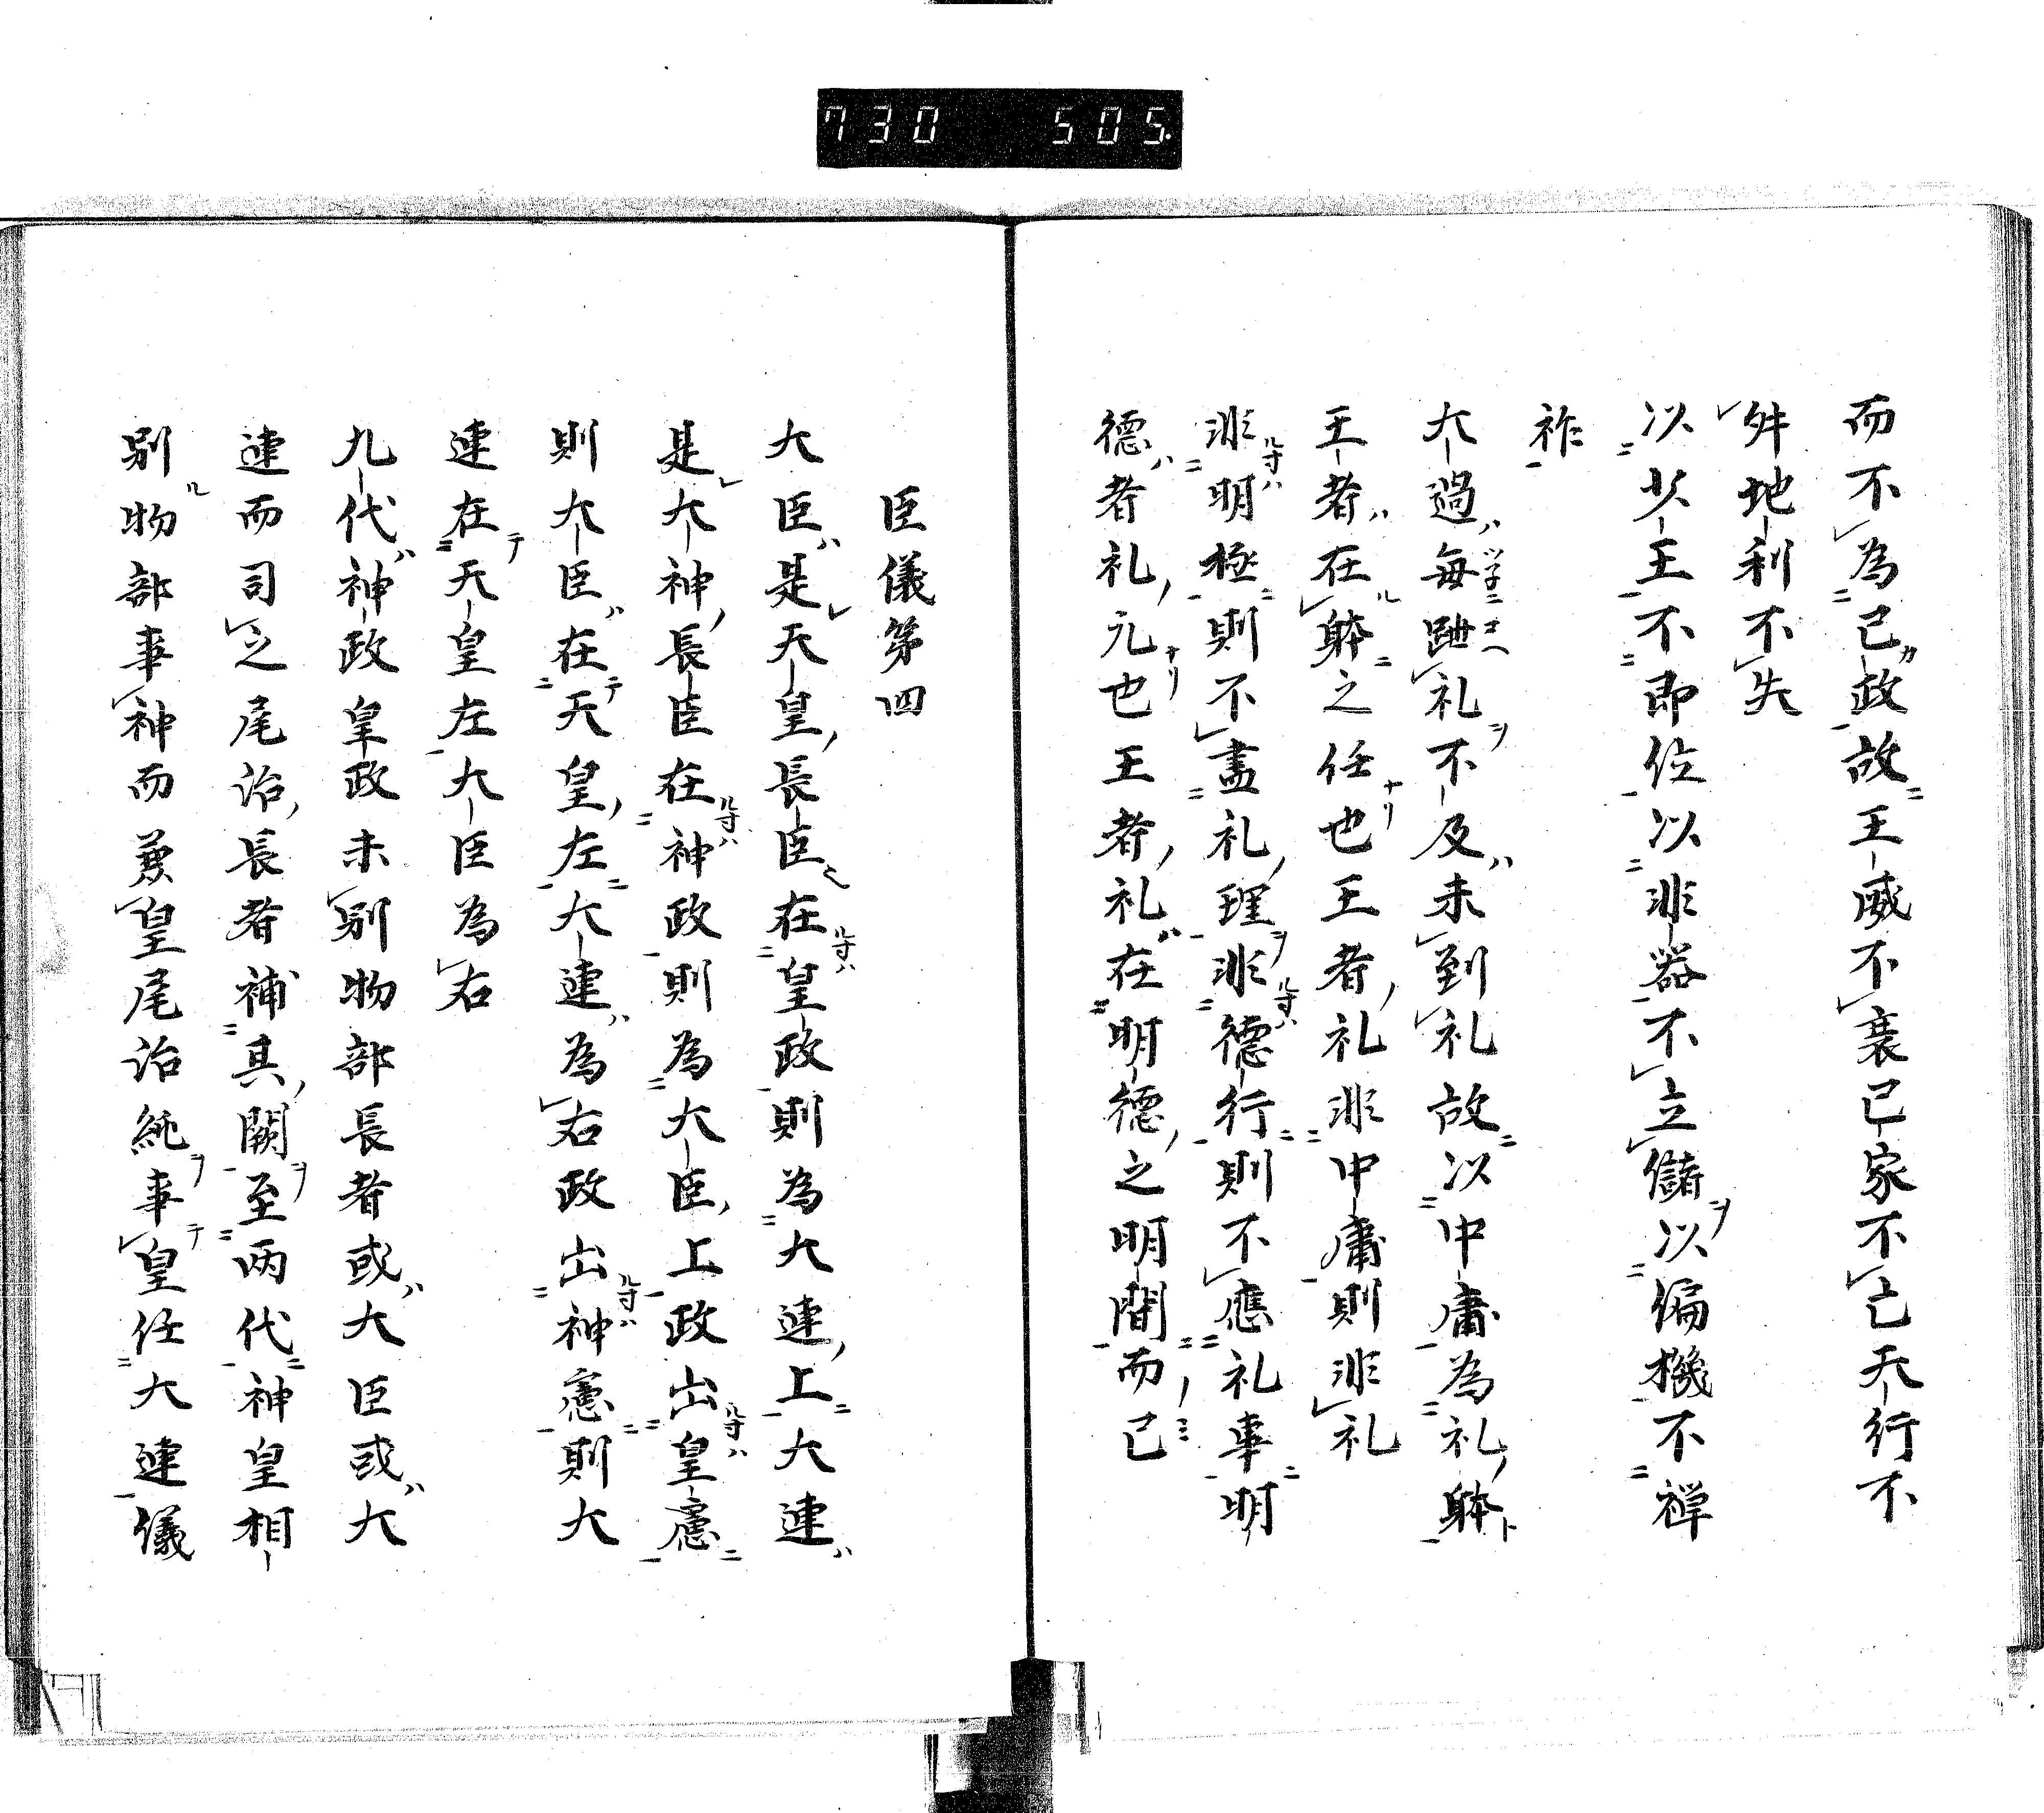 730 505
而不為己政故王威不衰已家不亡天行不
舛地利不失
以少王不即位以非器不立儲以偏機不禅
祚
大過毎跐礼不及未到礼故以中庸為礼躰
王者在躰之任也王者礼非中庸則非礼
非明極則不盡礼理非德行則不應礼事明
德者礼元也王者礼在明德之明間而已
臣儀第四
大臣是天皇長臣在皇政則為大連上大連
是大神長臣在神政則為大臣上政出皇慮
則大臣在天皇左大連為右政出神慮則大
連在天皇左大臣為右
九代神政皇政未別物部長者或大臣或大
連而司之尾治長者補其闕至两代神皇相
別物部事神而兼皇尾治純事皇任大連儀